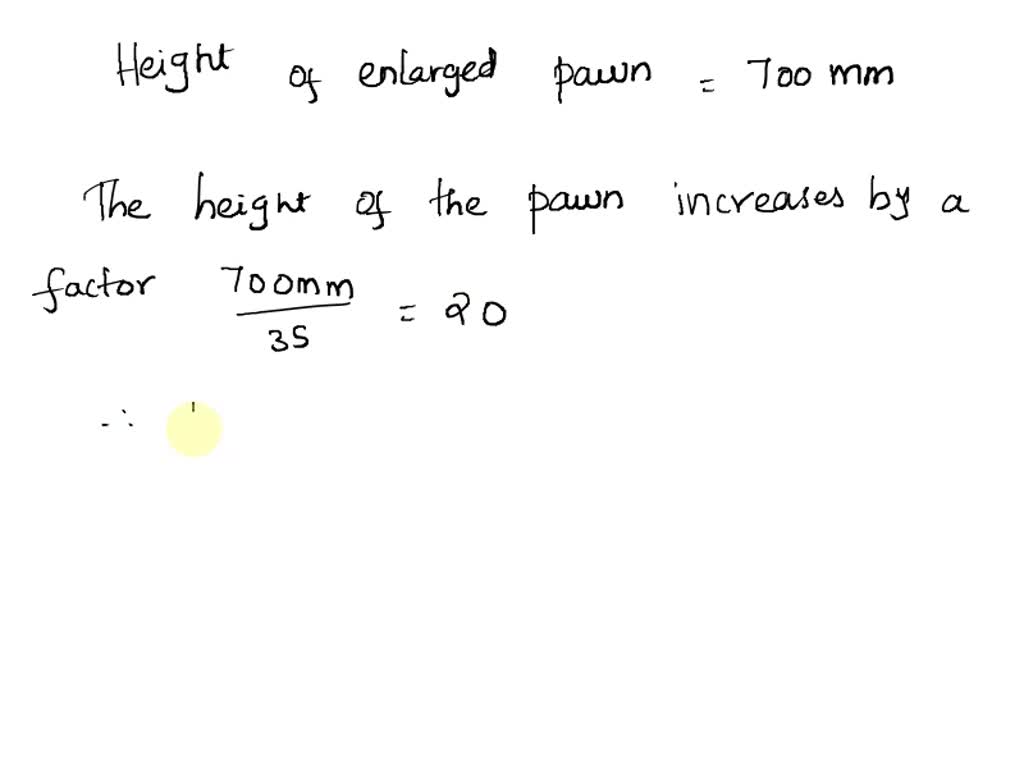 Height of enlarged pawn = 700 mm
The height of the pawn increases by a
factor 700mm / 35 = 20
∴